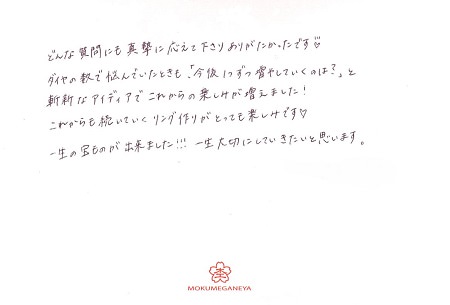 どんな質問にも真摯に応えて下さりありがたかったです♡
ダイヤの数で悩んでいたときも、「今後1つずつ増やしていくのは?」と
斬新なアイディアでこれからの楽しみが増えました!
これからも続いていくリング作りがとっても楽しみです♡
一生の宝ものが出来ました!!! 一生大切にしていきたいと思います。
MOKUMEGANEYA